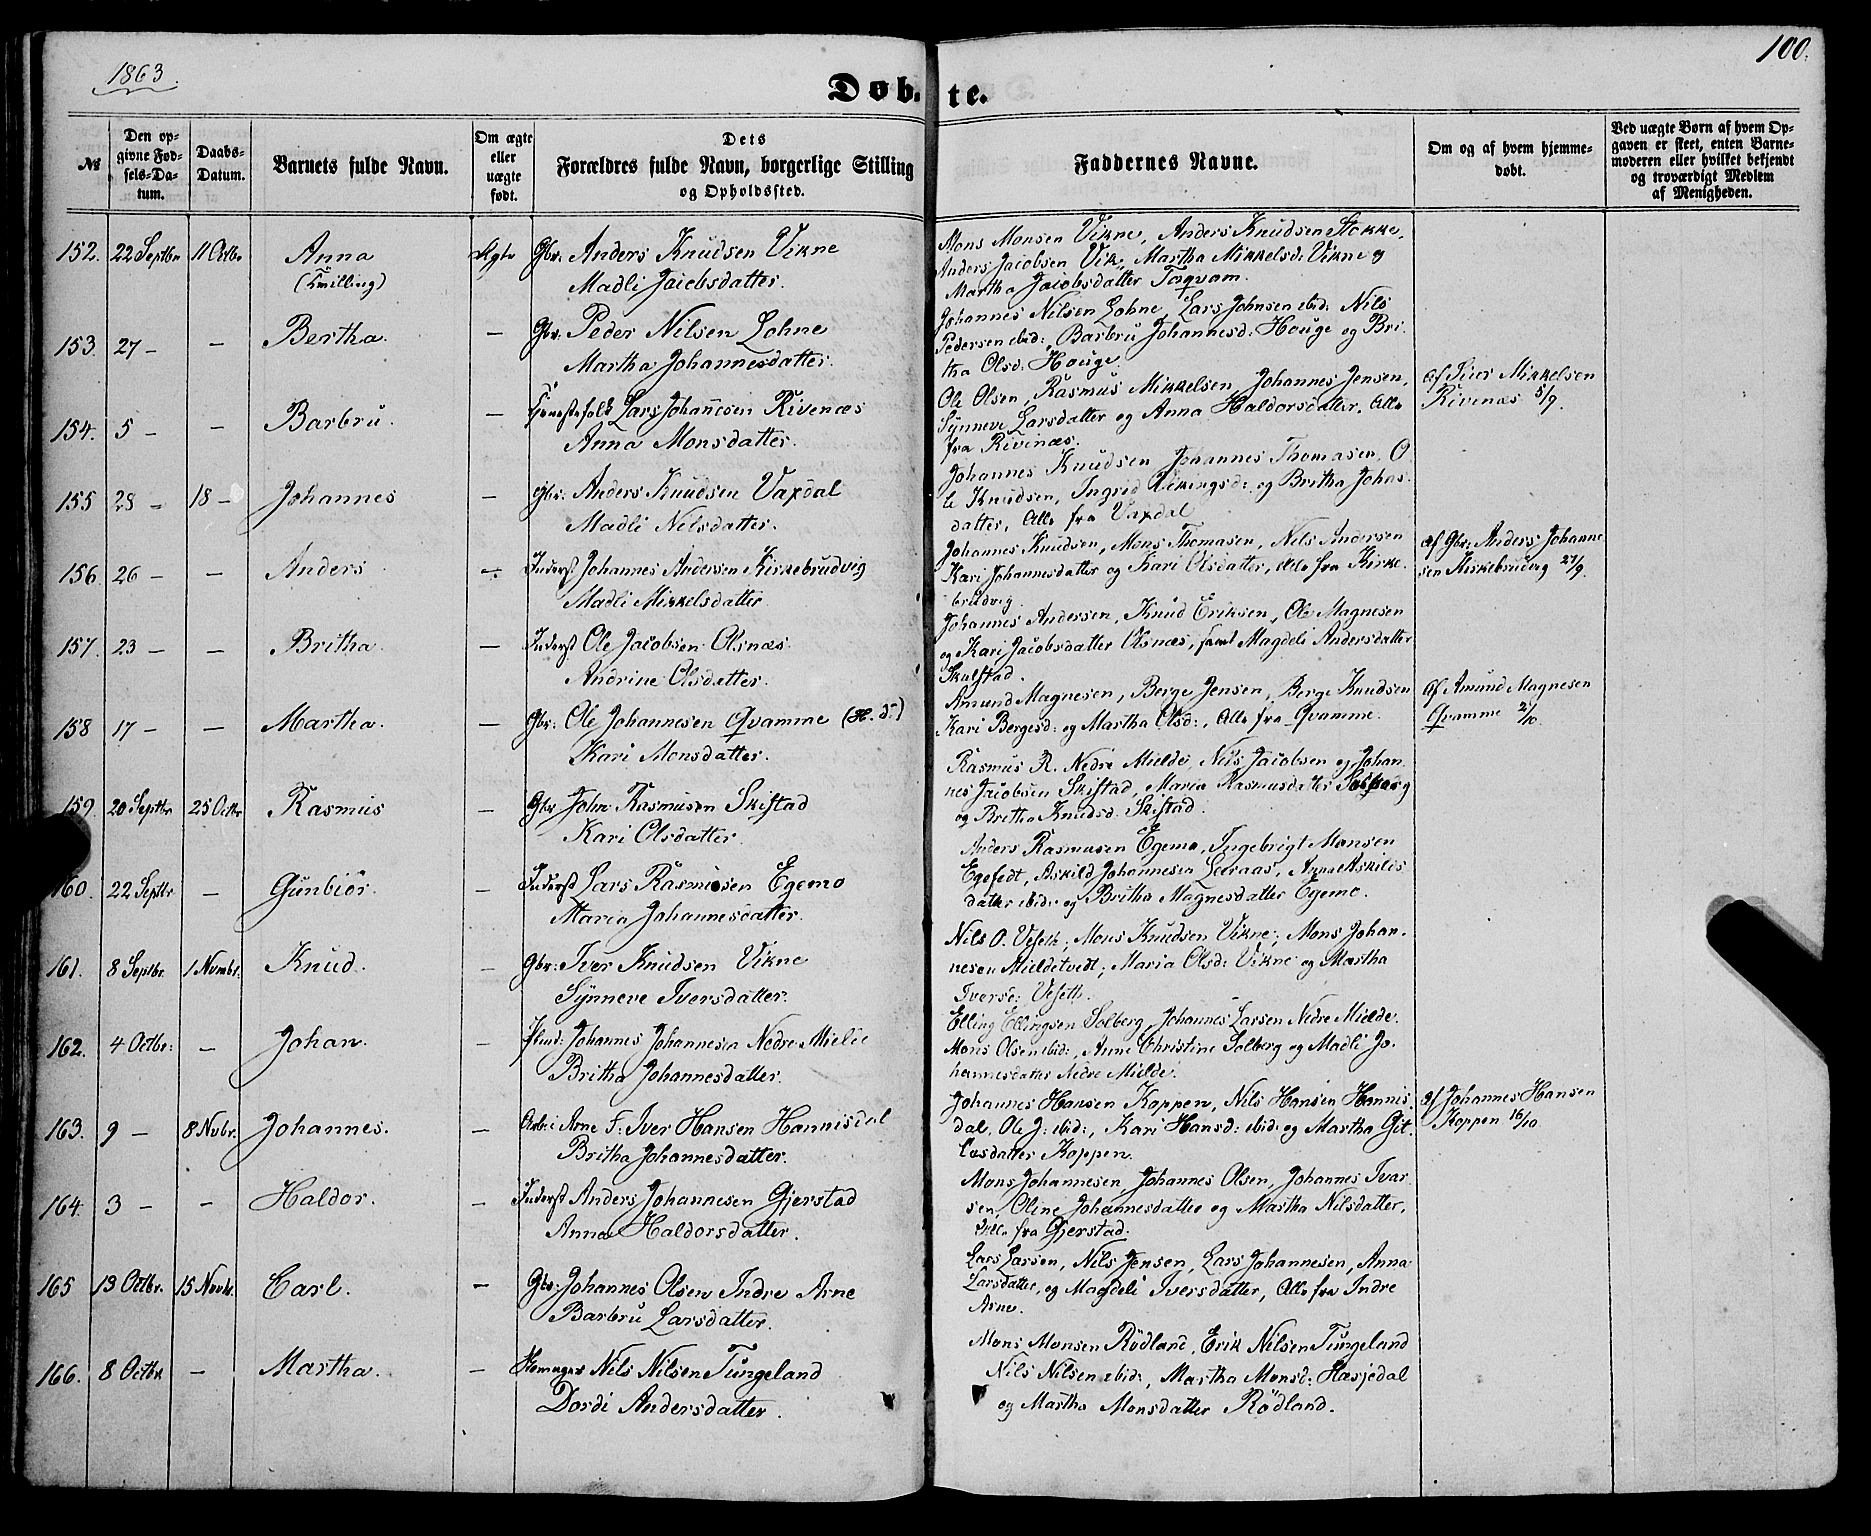 1863.
100.
Døbte.
№
Den opgivne Fødsels-Datum.
Daabs-Datum.
Barnets fulde Navn.
Om ægte eller uægte født.
Dets Forældres fulde Navn, borgerlige Stilling og Opholdssted.
Faddernes Navne.
Om og af hvem hjemmedøbt.
Ved uægte Børn af hvem Opgaven er skeet, enten Barnemoderen eller hvilket bekjendt og troværdigt Medlem af Menigheden.
152. 22 Septbr 11 Octbr Anna Ægte Gbr: Anders Knudsen Vikne
(Tvilling) Madli Jacobsdatter.
Mons Monsen Vikne, Anders Knudsen Stokke,
Anders Jacobsen Vik, Martha Mikkelsd: Vikne og
Martha Jacobsdatter Toqvam.
153. 27 — — Bertha. — Gbr: Peder Nilsen Lohne
Martha Johannesdatter.
Johannes Nilsen Lohne, Lars Johnsen ibid: Nils
Pedersen ibid:, Barbru Johannesd: Houge og Bri-
tha Olsd: Houge.
154. 5 — — Barbru. — Tjenestefolk Lars Johannesen Rivenæs
Anna Monsdatter.
Ole Olsen, Rasmus Mikkelsen, Johannes Jensen,
Synneve Larsdatter og Anna Haldorsdatter, Alle
fra Rivenæs.
af Peder Mikkelsen
Rivenæs 5/9.
155 28 — 18 — Johannes — Gbr: Anders Knudsen Vaxdal
Madli Nilsdatter.
Johannes Knudsen, Johannes Thomasen, O-
le Knudsen, Ingrid Vikingsd: og Britha Johns-
datter, Alle fra Vaxdal
156. 26 — — Anders — Inderst Johannes Andersen Kirkebrudvig
Madli Mikkelsdatter
Johannes Knudsen, Mons Thomasen, Nils Andersen
Kari Johannesdatter og Kari Olsdatter, Alle fra Kirke-
brudvig.
af Gbr: Anders Johanne-
sen Kirkebrudvig 27/9.
157. 23 — — Britha. — Inderst Ole Jacobsen Olsnæs
Andrine Olsdatter.
Johannes Andersen, Knud Eriksen, Ole Magnesen
og Kari Jacobsdatter Olsnæs, samt Magdeli Andersdatter
Skulstad.
158 17 — — Martha. — Gbr: Ole Johannesen Qvamme (H. S.)
Kari Monsdatter.
Amund Magnesen, Berge Jensen, Berge Knudsen
Kari Bergesd: og Martha Olsd:, Alle fra Qvamme.
af Amund Magnesen
Qvamme 2/10.
159. 20 Septbr 25 Octbr Rasmus — Gbr John Rasmusen Skistad
Kari Olsdatter.
Rasmus R. Nedre Mielde, Nils Jacobsen og Johan-
nes Jacobsen Skistad, Maria Rasmusdatter Solberg
og Britha Knudsd. Skistad.
160. 22 Septbr — Gunbiør. — Inderst Lars Rasmusen Egemo
Maria Johannesdatter.
Anders Rasmusen Egemo, Ingebrigt Monsen
Egefedt, Askild Johannesen Leiraas, Anna Askilds-
datter ibid: og Britha Magnesdatter Egemo.
161. 8 Septbr. 1 Novmbr. Knud. — Gbr: Iver Knudsen Vikne
Synneve Iversdatter.
Nils O. Veseth, Mons Knudsen Vikne, Mons Johan-
nesen Mieldetvedt, Maria Olsd: Vikne og Martha
Iversd: Veseth.
162. 4 Octbr: — Johan. — Huusmd: Johannes Johannesen Nedre Mielde
Britha Johannesdatter.
Elling Ellingsen Solberg, Johannes Larsen Nedre Mielde.
Mons Olsen ibid:, Anne Christine Solberg og Madli Jo-
hannesdatter Nedre Mielde.
163. 9 — 8 Novbr. Johannes. — Arne F: Iver Hansen Hannisdal
Britha Johannesdatter.
Johannes Hansen Koppen, Nils Hansen Hannis-
dal, Ole J: ibid:, Kari Hansd: ibid: og Martha Git-
lesdatter Koppen.
af Johannes Hansen
Koppen 16/10.
164. 3 — — Haldor. — Inderst Anders Johannesen Gjerstad
Anna Haldorsdatter.
Mons Johannesen, Johannes Olsen, Johannes Ivar-
sen, Oline Johannesdatter og Martha Nilsdatter,
Alle fra Gjerstad.
165 13 Octbr. 15 Novbr. Carl. — Gbr: Johannes Olsen Indre Arne
Barbru Larsdatter.
Lars Larsen, Nils Jensen, Lars Johannesen, Anna
Larsdatter, og Magdeli Iversdatter, Alle fra Indre
Arne.
166. 8 Octbr. — Martha. — Nils Nilsen Tungeland
Dordi Andersdatter.
Mons Monsen Rödland, Erik Nilsen Tungeland
Nils Nilsen ibid:, Martha Monsd: Hasjedal
og Martha Monsdatter Rödland.